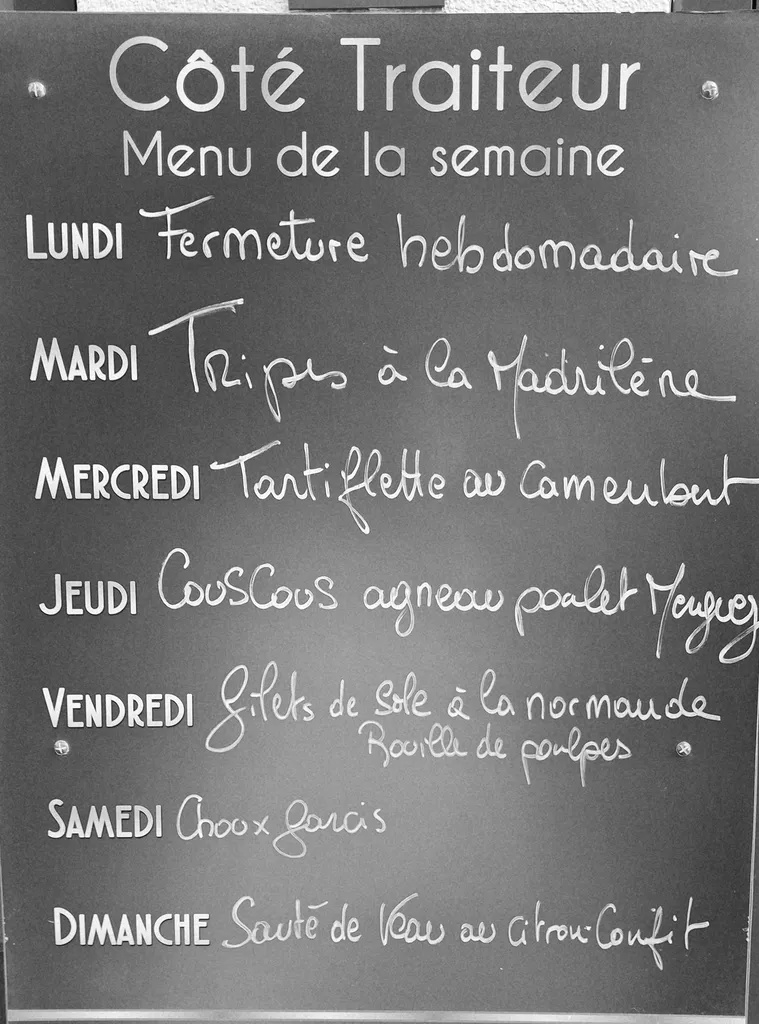 Côté Traiteur
Menu de la semaine
LUNDI Fermeture hebdomadaire
MARDI Tripes à la Madrilène
MERCREDI Tartiflette au Camembert
JEUDI Couscous agneau poulet Merguez
VENDREDI filets de sole à la normande
Rouille de poulpes
SAMEDI Choux farcis
DIMANCHE Sauté de Veau au citron-Confit